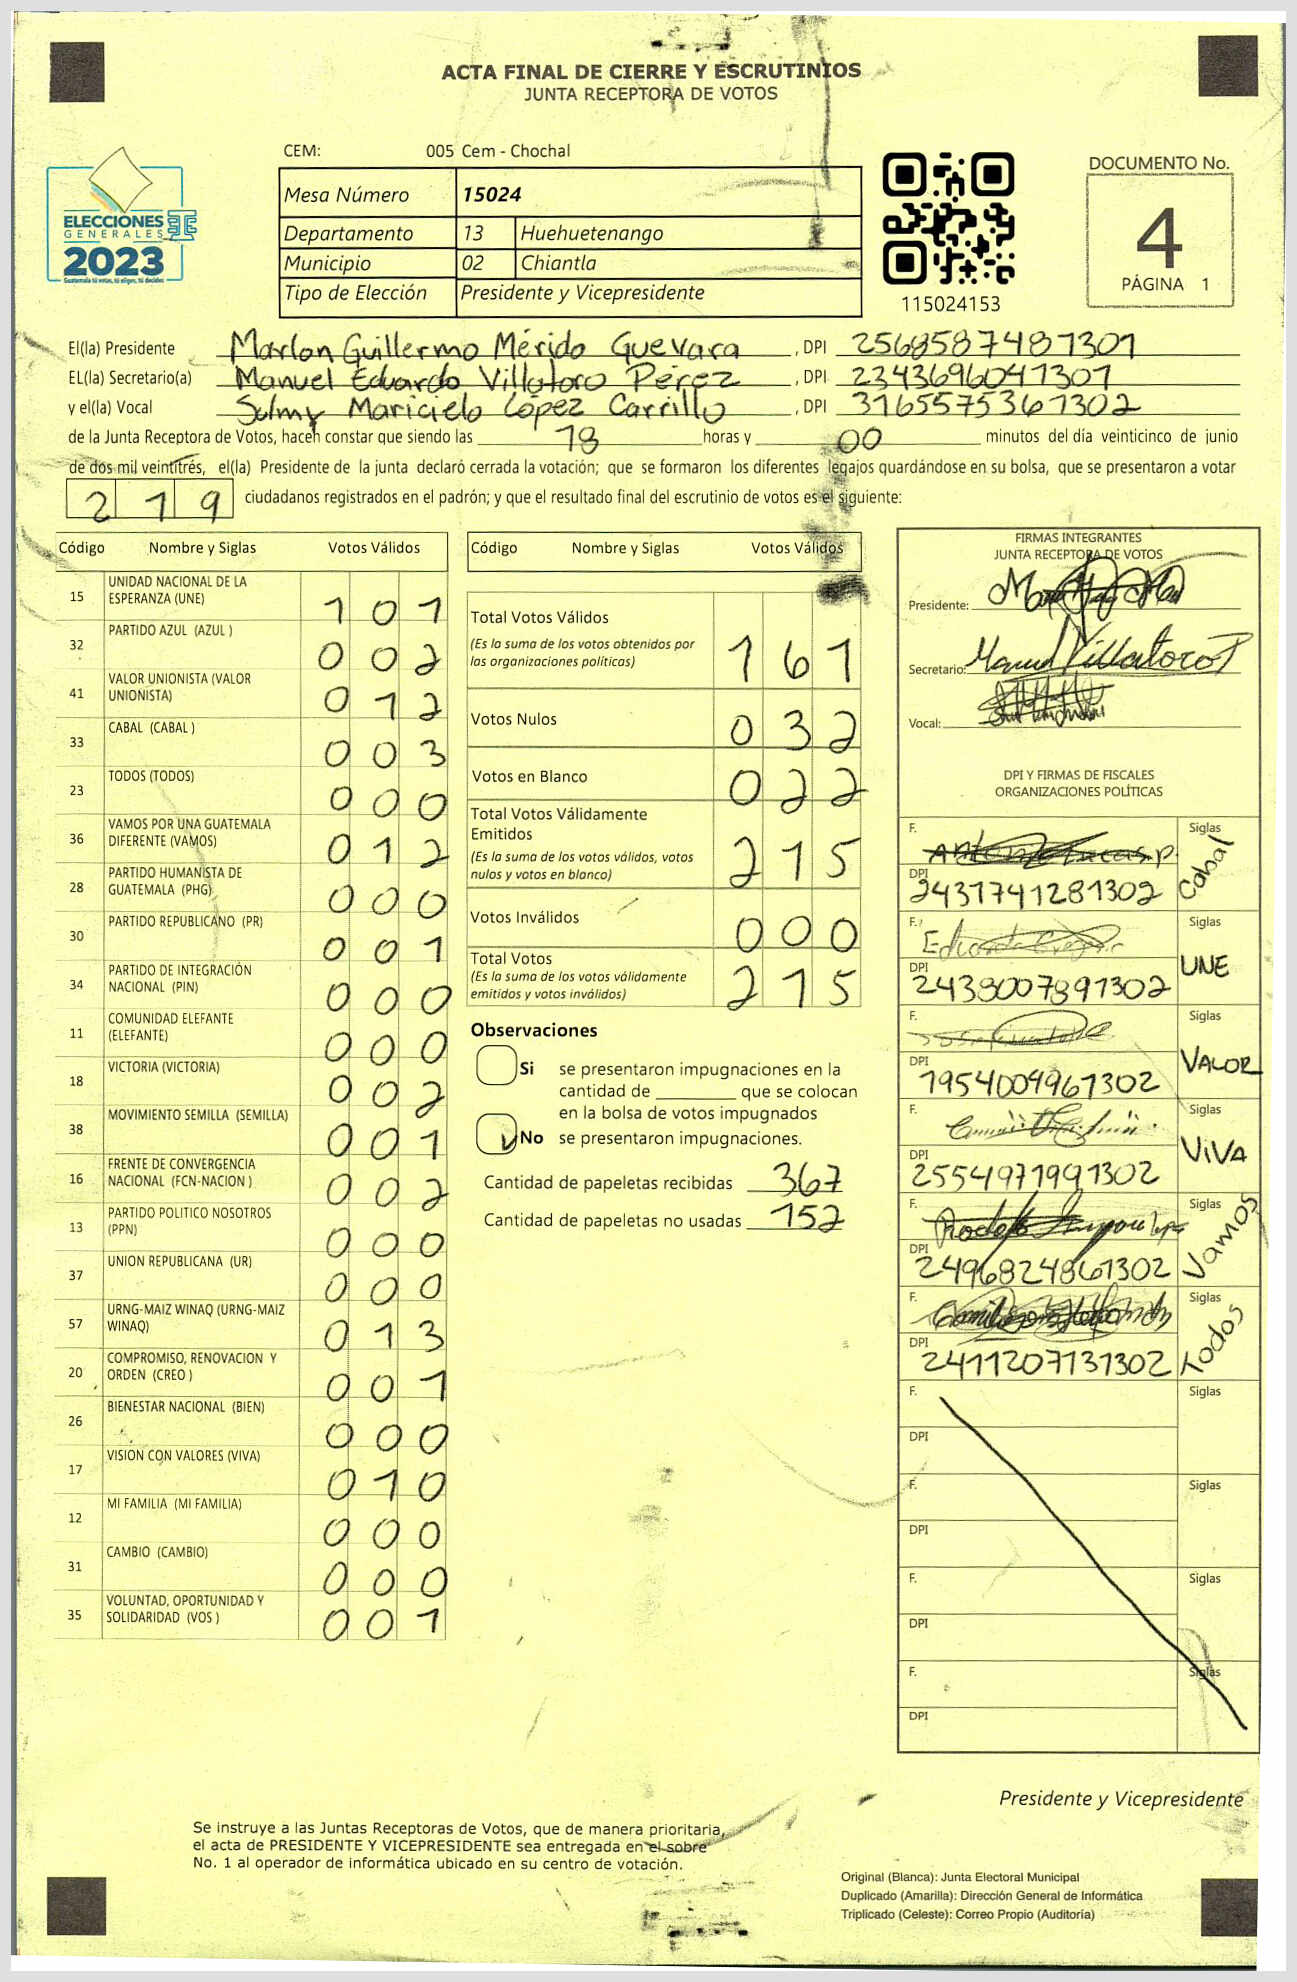 ACTA FINAL DE CIERRE Y ESCRUTINIOS
JUNTA RECEPTORA DE VOTOS
ELECCIONES
GENERALES
2023
Guatemala tú votas, tú eliges, tú decides
CEM: 005 Cem - Chochal
Mesa Número 15024
Departamento 13 Huehuetenango
Municipio 02 Chiantla
Tipo de Elección Presidente y Vicepresidente
115024153
DOCUMENTO No.
4
PÁGINA 1
El(la) Presidente Marlon Guillermo Mérido Guevara , DPI 2568587481301
EL(la) Secretario(a) Manuel Eduardo Villatoro Pérez , DPI 2343696041301
y el(la) Vocal Sulmy Maricielo López Carrillo , DPI 3165575361302
de la Junta Receptora de Votos, hacen constar que siendo las 18 horas y 00 minutos del día veinticinco de junio
de dos mil veintitrés, el(la) Presidente de la junta declaró cerrada la votación; que se formaron los diferentes legajos quardándose en su bolsa, que se presentaron a votar
219 ciudadanos registrados en el padrón; y que el resultado final del escrutinio de votos es el siguiente:
Código Nombre y Siglas Votos Válidos
15 UNIDAD NACIONAL DE LA
ESPERANZA (UNE) 101
32 PARTIDO AZUL (AZUL ) 002
41 VALOR UNIONISTA (VALOR
UNIONISTA) 012
33 CABAL (CABAL ) 003
23 TODOS (TODOS) 000
36 VAMOS POR UNA GUATEMALA
DIFERENTE (VAMOS) 012
28 PARTIDO HUMANISTA DE
GUATEMALA (PHG) 000
30 PARTIDO REPUBLICANO (PR) 001
34 PARTIDO DE INTEGRACIÓN
NACIONAL (PIN) 000
11 COMUNIDAD ELEFANTE
(ELEFANTE) 000
18 VICTORIA (VICTORIA) 002
38 MOVIMIENTO SEMILLA (SEMILLA) 001
16 FRENTE DE CONVERGENCIA
NACIONAL (FCN-NACION ) 002
13 PARTIDO POLITICO NOSOTROS
(PPN) 000
37 UNION REPUBLICANA (UR) 000
57 URNG-MAIZ WINAQ (URNG-MAIZ
WINAQ) 013
20 COMPROMISO, RENOVACION Y
ORDEN (CREO ) 001
26 BIENESTAR NACIONAL (BIEN) 000
17 VISION CON VALORES (VIVA) 010
12 MI FAMILIA (MI FAMILIA) 000
31 CAMBIO (CAMBIO) 000
35 VOLUNTAD, OPORTUNIDAD Y
SOLIDARIDAD (VOS ) 001
Código Nombre y Siglas Votos Válidos
Total Votos Válidos
(Es la suma de los votos obtenidos por
las organizaciones políticas) 161
Votos Nulos 032
Votos en Blanco 022
Total Votos Válidamente
Emitidos
(Es la suma de los votos válidos, votos
nulos y votos en blanco) 215
Votos Inválidos 000
Total Votos
(Es la suma de los votos válidamente
emitidos y votos inválidos) 215
Observaciones
Si se presentaron impugnaciones en la
cantidad de ________ que se colocan
en la bolsa de votos impugnados
No se presentaron impugnaciones.
Cantidad de papeletas recibidas 367
Cantidad de papeletas no usadas 152
FIRMAS INTEGRANTES
JUNTA RECEPTORA DE VOTOS
Presidente:
Secretario: Manuel Villatoro P
Vocal:
DPI Y FIRMAS DE FISCALES
ORGANIZACIONES POLÍTICAS
F. Siglas
DPI 2431741281302 Cabal
F. Siglas
DPI 2438007891302 UNE
F. Siglas
DPI 1954004961302 VALOR
F. Siglas
DPI 2554971991302 ViVA
F. Siglas
DPI 2496824861302 Vamos
F. Siglas
DPI 2411207131302 todos
F. Siglas
DPI
F. Siglas
DPI
F. Siglas
DPI
F. Siglas
DPI
Presidente y Vicepresidente
Se instruye a las Juntas Receptoras de Votos, que de manera prioritaria,
el acta de PRESIDENTE Y VICEPRESIDENTE sea entregada en el sobre
No. 1 al operador de informática ubicado en su centro de votación.
Original (Blanca): Junta Electoral Municipal
Duplicado (Amarilla): Dirección General de Informática
Triplicado (Celeste): Correo Propio (Auditoría)